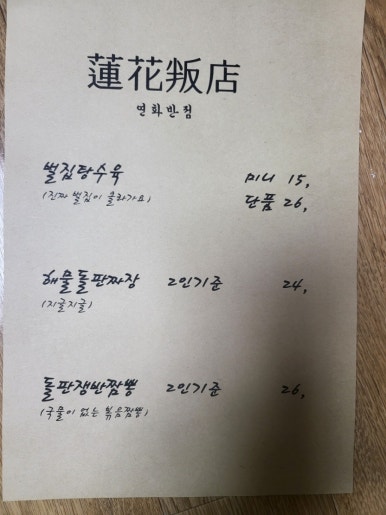 蓮花叛店
연화반점
벌집탕수육 미니 15,
(진짜 벌집이 올라가요) 단품 26,
해물돌판짜장 2인기준 24,
(지글지글)
돌판쟁반짬뽕 2인기준 26,
(국물이 없는 볶음짬뽕)